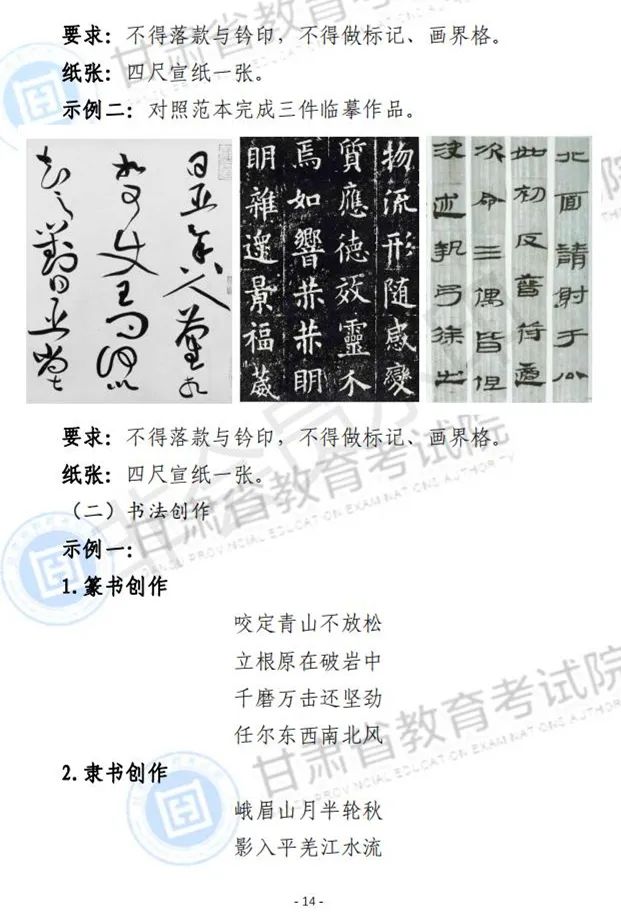 要求：不得落款与钤印，不得做标记、画界格。
纸张：四尺宣纸一张。
示例二：对照范本完成三件临摹作品。
物流形随感變
質應德效靈介
焉如響赫赫明
明雜遝景福葳
北面請射于公
要求：不得落款与钤印，不得做标记、画界格。
纸张：四尺宣纸一张。
（二）书法创作
示例一：
1.篆书创作
咬定青山不放松
立根原在破岩中
千磨万击还坚劲
任尔东西南北风
2.隶书创作
峨眉山月半轮秋
影入平羌江水流
- 14 -
甘肃省教育考试院
甘肃省教育考试院
GANSU PROVINCIAL EDUCATION EXAMINATIONS AUTHORITY
甘肃省教育考试院
GANSU PROVINCIAL EDUCATION EXAMINATIONS AUTHORITY